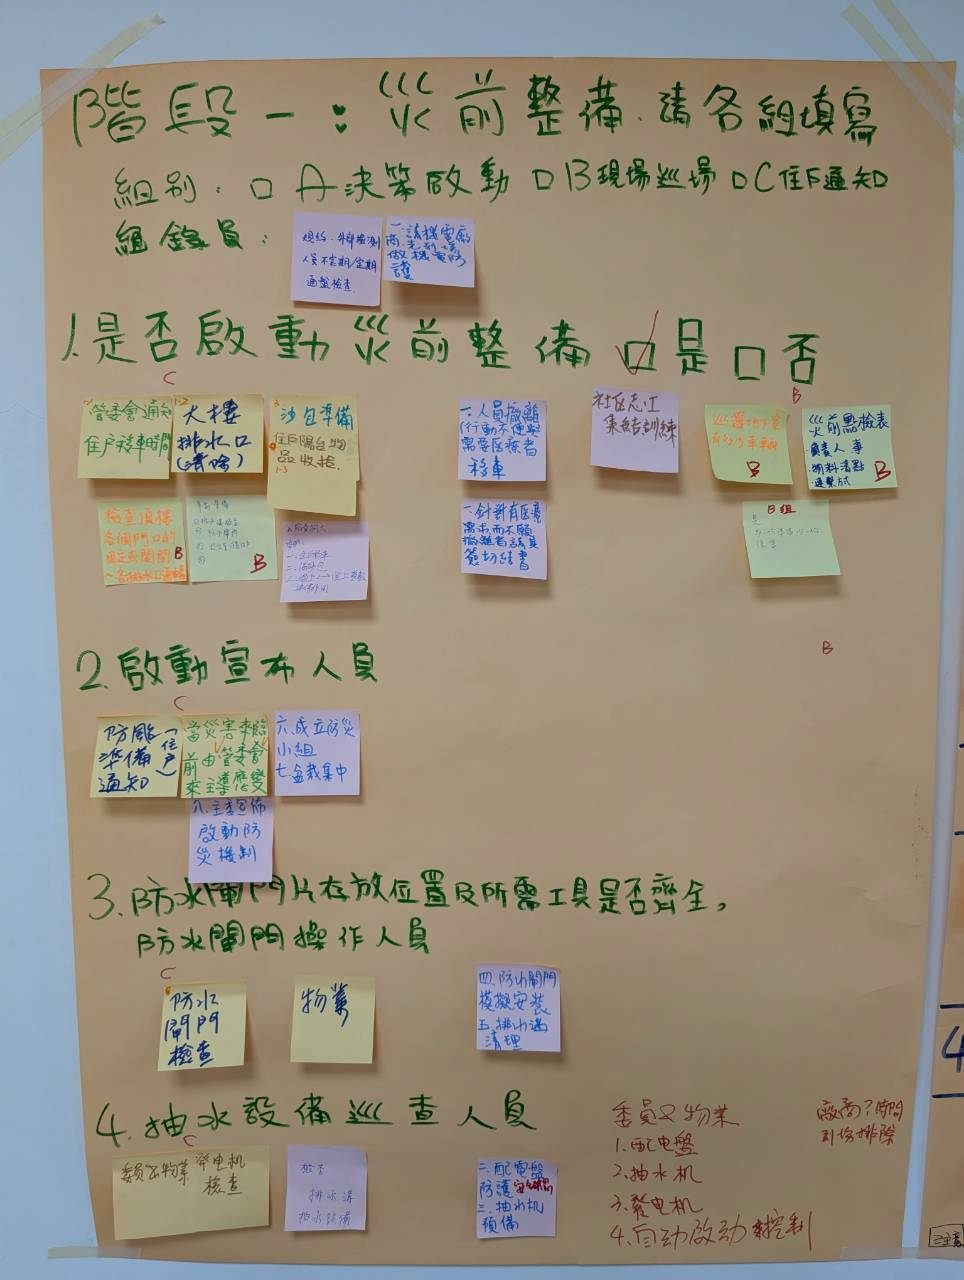 階段一：災前整備.請各組填寫
組別：□ A決策啟動 □ B現場巡場 □ C住戶通知
組錄員：
規約、外部檢測
人員不定期/定期
通盤檢查.
一.請機電廠
商先到場
做機電防
護
1.是否啟動災前整備 ☑是 □否
C
管委會通知
住戶移車時間
1-2
大樓
排水口
(清除)
3
沙包準備
住戶陽台物
品收拾.
1-3
一.人員撤離
(行動不便與
需要医療者
移車
社区志工
集結訓練
B
有的汽車車輛
B
災前點檢表
負責人事
物料清點
連繫方式
B
檢查頂樓
各個門口的
B
B
一.針對有医療
需求而不願
撤離者請其
簽切結書
B組
B
2.啟動宣布人員
C
防颱(住戶)
準備
通知
當災害來臨
前由管委會
來主導應變
六.成立防災
小組
七.盆栽集中
八.主委宣佈
啟動防
災機制
3.防水閘門片存放位置及所需工具是否齊全,
防水閘門操作人員
C
防水
閘門
檢查
物業
四.防水閘門
模擬安裝
五.排水溝
清理
4.抽水設備巡查人員
C
委員及物業 發电机
檢查
檢查
排水溝
抽水設備
二.配電盤
防護
三.抽水机
預備
委員及物業
1.配电盤
2.抽水机
3.發电机
4.自动啟动 控制
廠商?時間
到場排除
4
注意